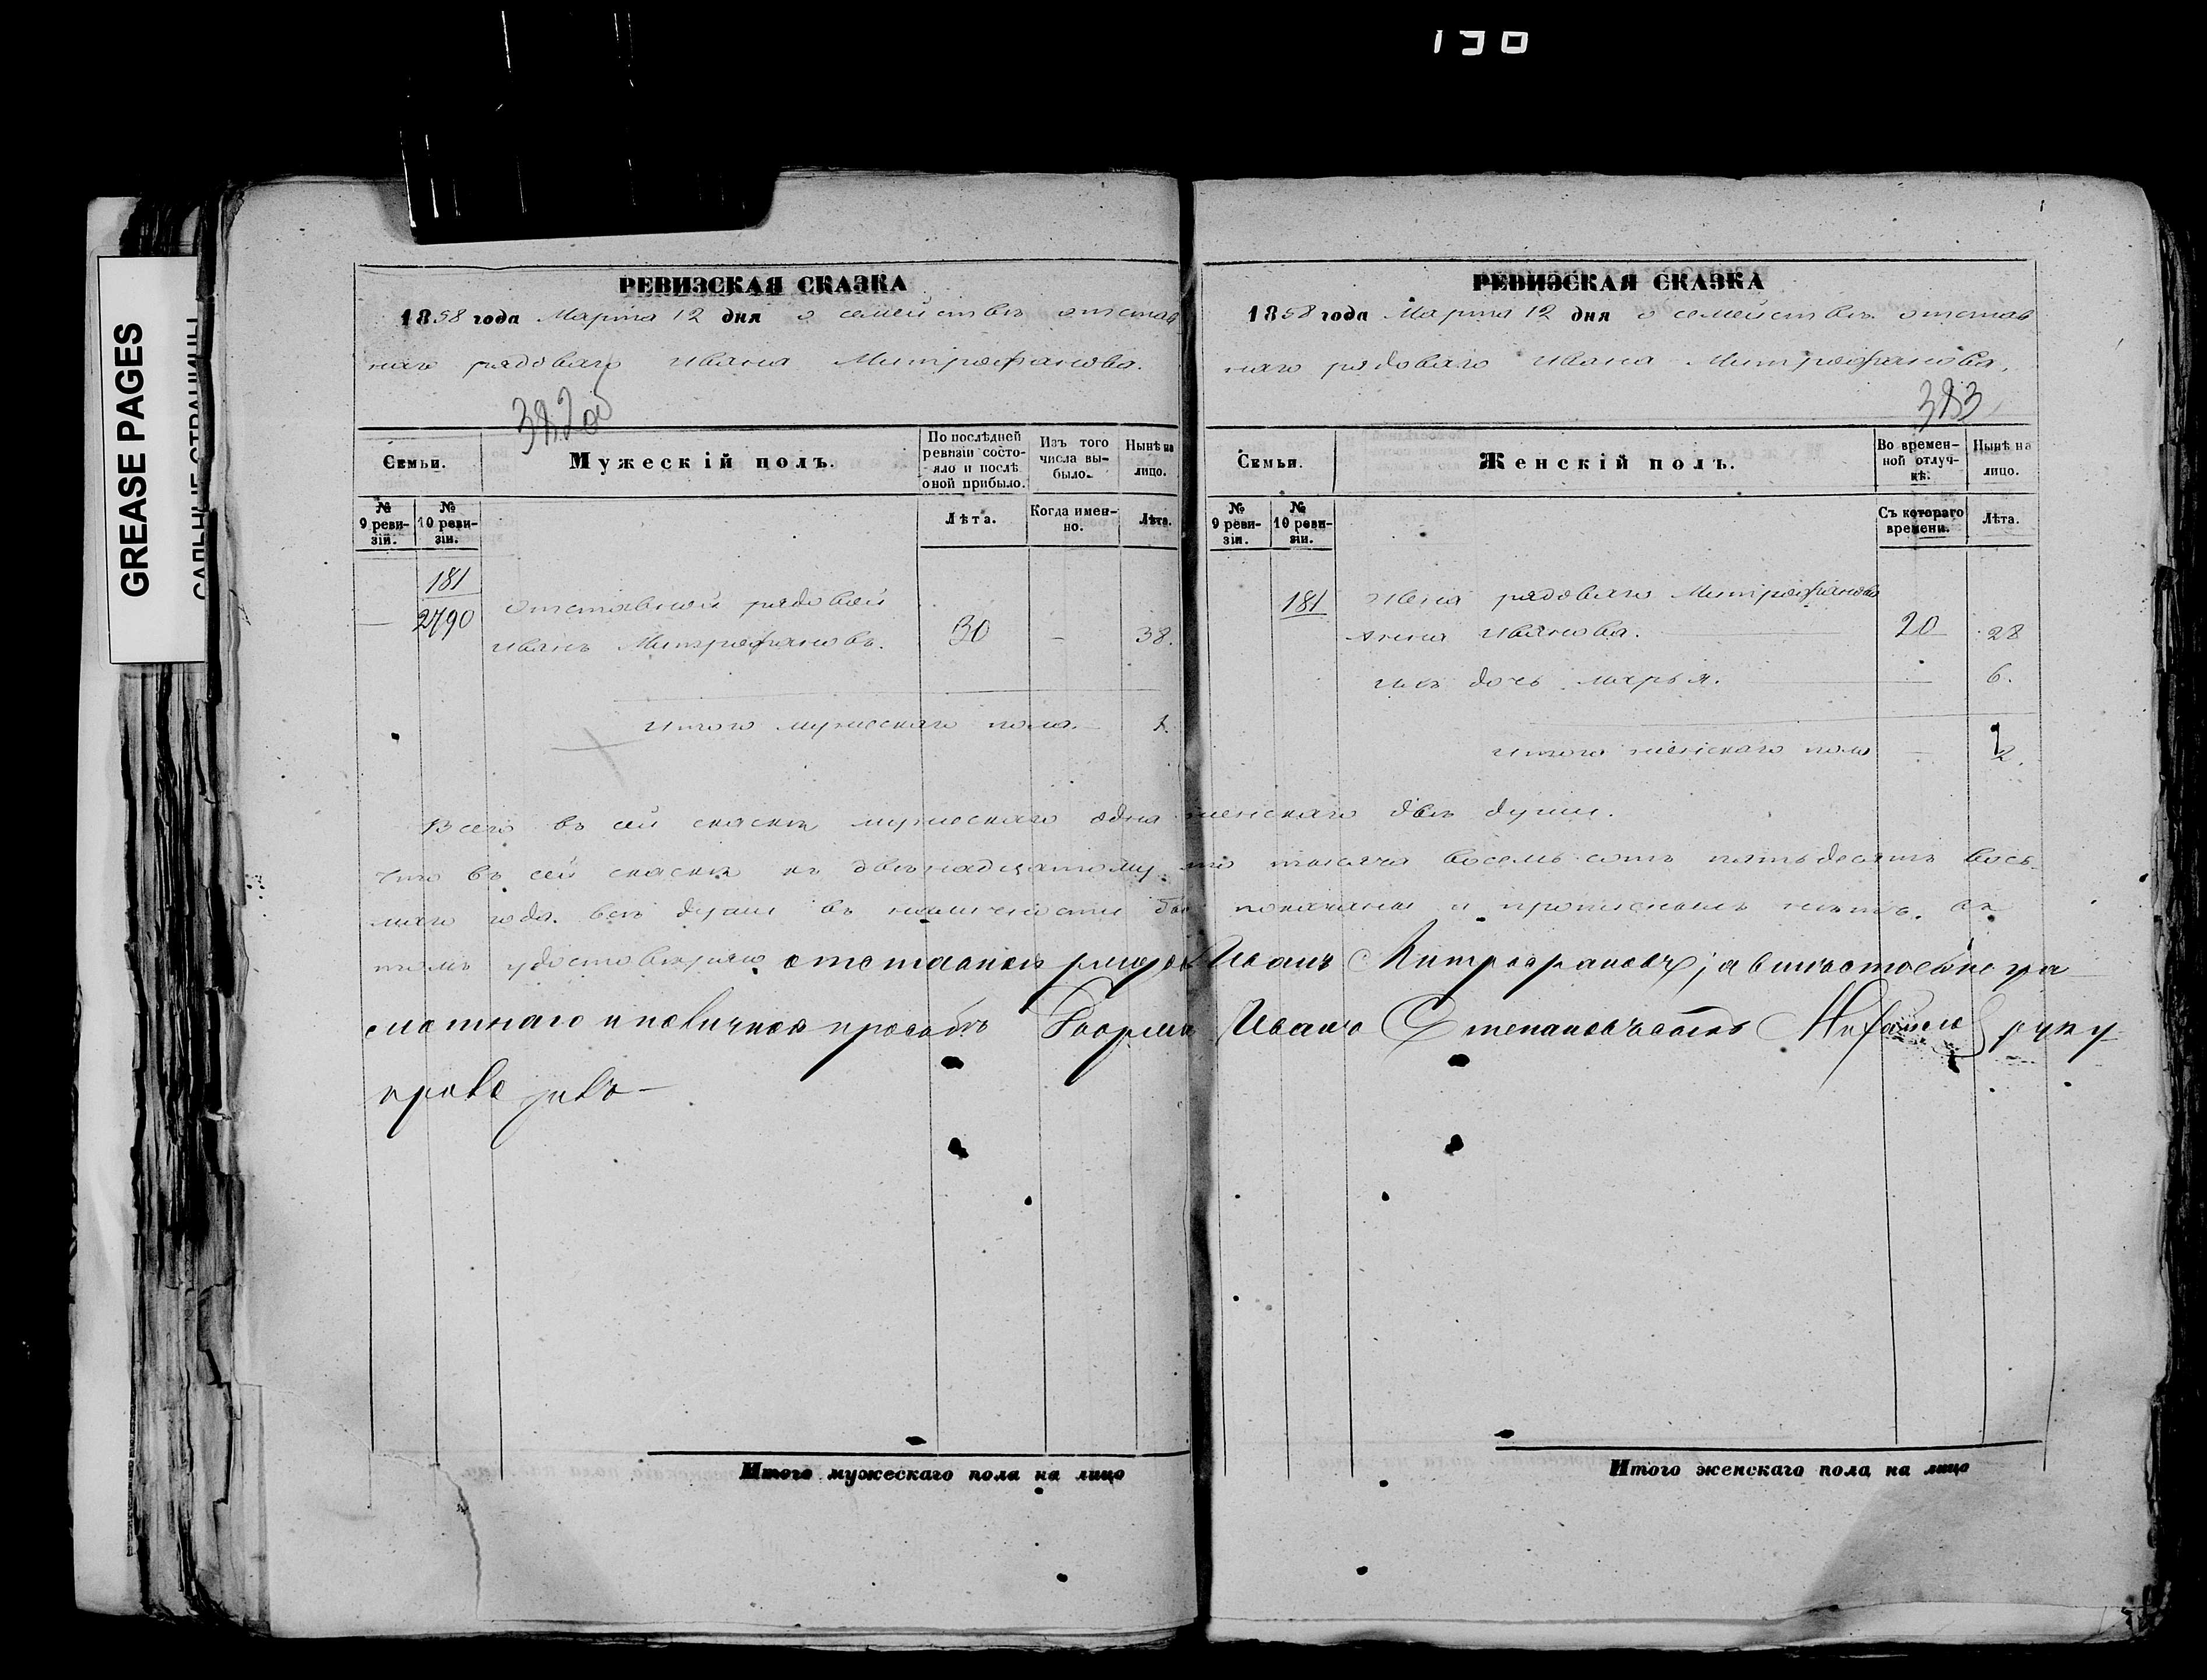 130
GREASE PAGES
САЛЬНЫЕ СТРАНИЦЫ
РЕВИЗСКАЯ СКАЗКА
1858 года Марта 12 дня о семействѣ отстав
наго рядоваго Ивана Митрофанова.
382об
Семьи.
Мужескій полъ.
По послѣдней ревизіи состояло и послѣ оной прибыло.
Изъ того числа выбыло.
Нынѣ на лицо.
№ 9 ревизіи.
№ 10 ревизіи.
Лѣта.
Когда именно.
Лѣта.
181
— 2790
Отставной рядовой
Иванъ Митрофановъ. 30 — 38.
Итого мужескаго пола. — 1.
РЕВИЗСКАЯ СКАЗКА
1858 года Марта 12 дня о семействѣ отстав
наго рядоваго Ивана Митрофанова.
383
Семьи.
Женскій полъ.
Во временной отлучкѣ.
Нынѣ на лицо.
№ 9 ревизіи.
№ 10 ревизіи.
Съ котораго времени.
Лѣта.
181 Жена рядоваго Митрофанова
Анна Иванова. 20 28
ихъ дочь Марья. — 6.
Итого женскаго пола — 2.
Всего въ сей сказкѣ мужескаго одна женскаго двѣ души.
Что въ сей сказкѣ къ двѣнадцатому тысяча восемь сотъ пятьдесятъ вось
маго года. всѣ души въ наличности показаны и прописныхъ нѣтъ. въ
томъ удостовѣряю отставной рядов Иванъ Митрофановъ, а вмѣсто его негра
мотнаго и по личной просьбѣ Иванъ Степановъ сынъ руку
приложилъ
Итого мужескаго пола на лицо
Итого женскаго пола на лицо